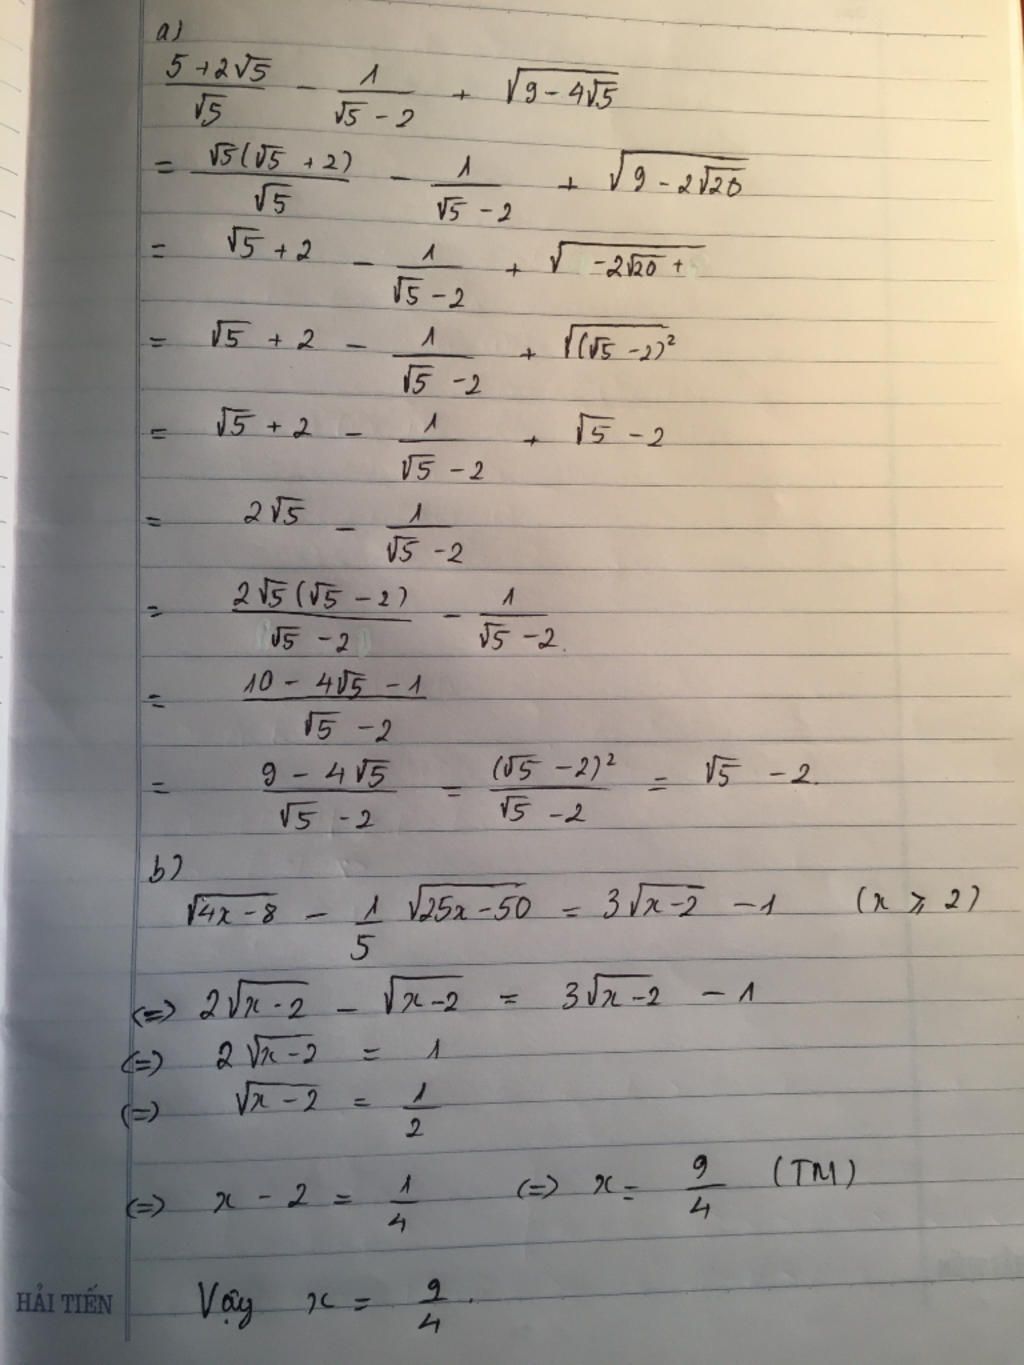 a)
(5 + 2√5)/√5 - 1/(√5 - 2) + √(9 - 4√5)
= √5(√5 + 2)/√5 - 1/(√5 - 2) + √(9 - 2√20)
= √5 + 2 - 1/(√5 - 2) + √( -2√20 + )
= √5 + 2 - 1/(√5 - 2) + √((√5 - 2)²)
= √5 + 2 - 1/(√5 - 2) + √5 - 2
= 2√5 - 1/(√5 - 2)
= 2√5(√5 - 2)/(√5 - 2) - 1/(√5 - 2)
= (10 - 4√5 - 1)/(√5 - 2)
= (9 - 4√5)/(√5 - 2) = (√5 - 2)²/(√5 - 2) = √5 - 2.
b)
√(4x - 8) - 1/5 √(25x - 50) = 3√(x - 2) - 1 (x ⩾ 2)
(=) 2√(x - 2) - √(x - 2) = 3√(x - 2) - 1
(=) 2√(x - 2) = 1
(=) √(x - 2) = 1/2
(=) x - 2 = 1/4 (=) x = 9/4 (TM)
Vậy x = 9/4.
HẢI TIẾN